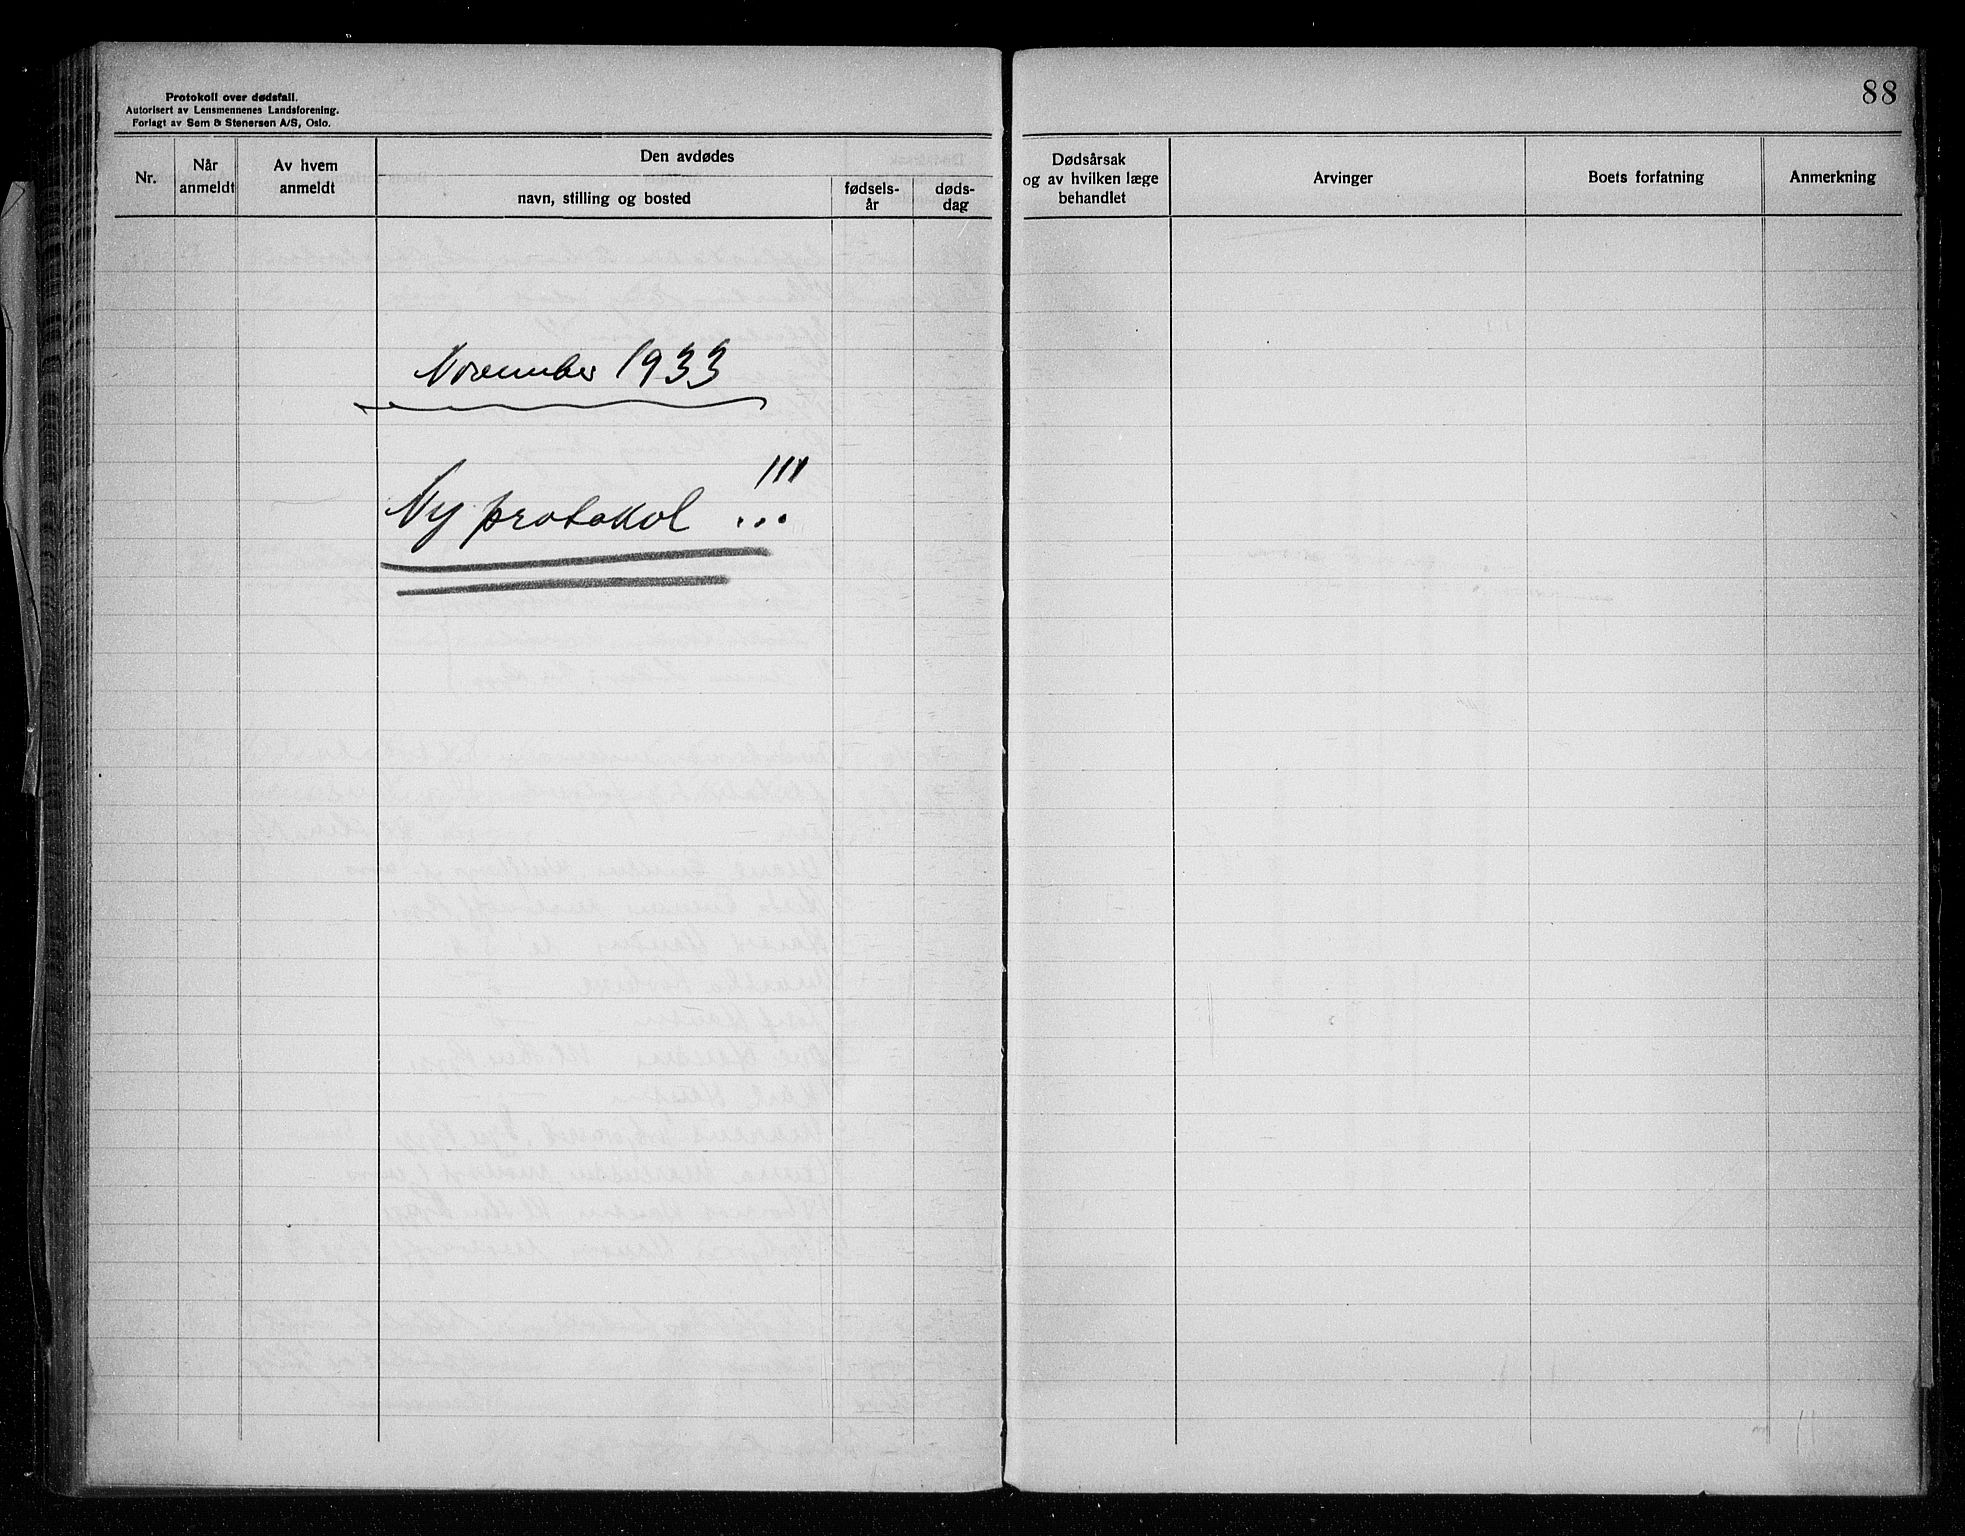 Protokoll over dødsfall.
Autorisert av Lensmennenes Landsforening.
Forlagt av Sem & Stenersen A/S, Oslo.
Nr.
Når anmeldt
Av hvem anmeldt
Den avdødes
navn, stilling og bosted
fødsels-
år
døds-
dag
November 1933
Ny protokol !!!
88
Dødsårsak
og av hvilken læge
behandlet
Arvinger
Boets forfatning
Anmerkning